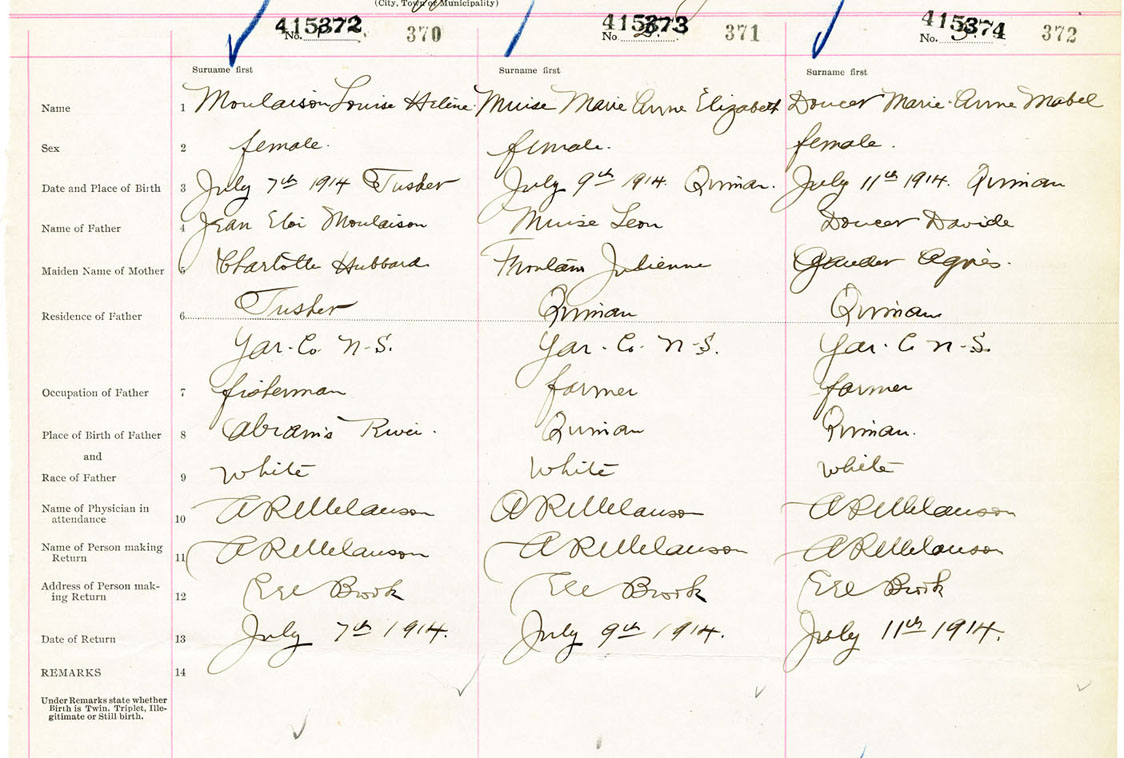 (City, Town or Municipality)
415372 415373 415374
No. 370 No. 2 371 No. 3 372
Surname first Surname first Surname first
Name 1 Moulaison Louise Helene Muise Marie Anne Elizabeth Doucet Marie-Anne Mabel
Sex 2 female. female. female.
Date and Place of Birth 3 July 7th 1914 Tusket July 9th 1914. Quinan. July 11th 1914. Quinan
Name of Father 4 Jean Eloi Moulaison Muise Leon Doucet Davide
Maiden Name of Mother 5 Charlotte Hubbard Julienne Agnes.
Residence of Father 6 Tusket Quinan Quinan
Yar. Co. N-S. Yar. Co. N-S. Yar. Co N-S.
Occupation of Father 7 fisherman farmer farmer
Place of Birth of Father 8 Abrams River. Quinan Quinan.
and
Race of Father 9 White White White
Name of Physician in
attendance 10 A R Melanson A R Melanson A R Melanson
Name of Person making
Return 11 A R Melanson A R Melanson A R Melanson
Address of Person mak-
ing Return 12 Eel Brook Eel Brook Eel Brook
Date of Return 13 July 7th 1914. July 9th 1914. July 11th 1914.
REMARKS 14
Under Remarks state whether
Birth is Twin, Triplet, Ille-
gitimate or Still birth.